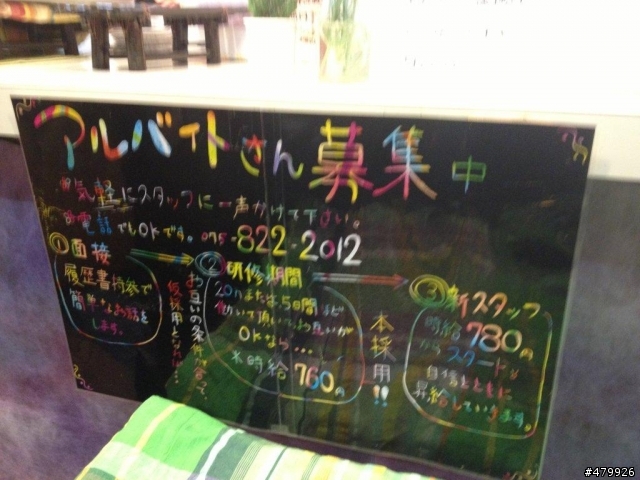 アルバイトさん募集中
お気軽にスタッフに一声かけて下さい。
お電話でもOKです。075-822-2012
①面接
履歴書持参で
簡単なお話を
します。
お互いの条件が合って、
仮採用となれば…
②研修期間
20hまたは、5日間ほど
働いて頂いてお互いが
OKなら…
※時給760円
本採用!!
③新スタッフ
時給780円
からスタート。
自信とともに
昇給していきます。
#479926